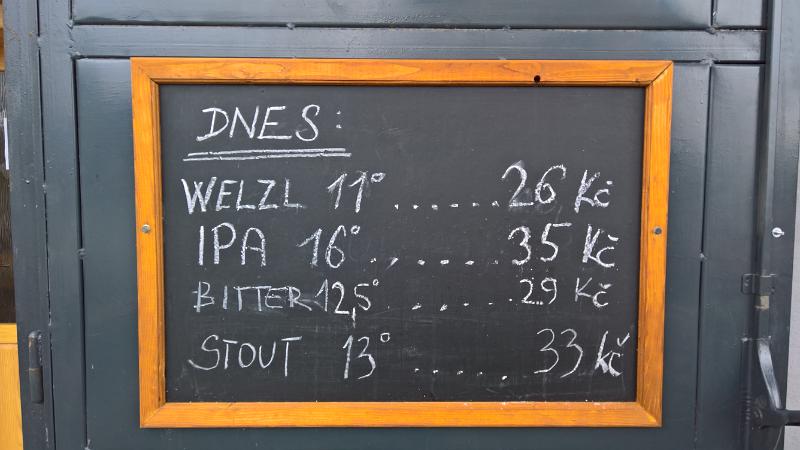 DNES:
WELZL 11° ...... 26 Kč
IPA 16° ...... 35 Kč
BITTER 12,5° ..... 29 Kč
STOUT 13° ..... 33 kč